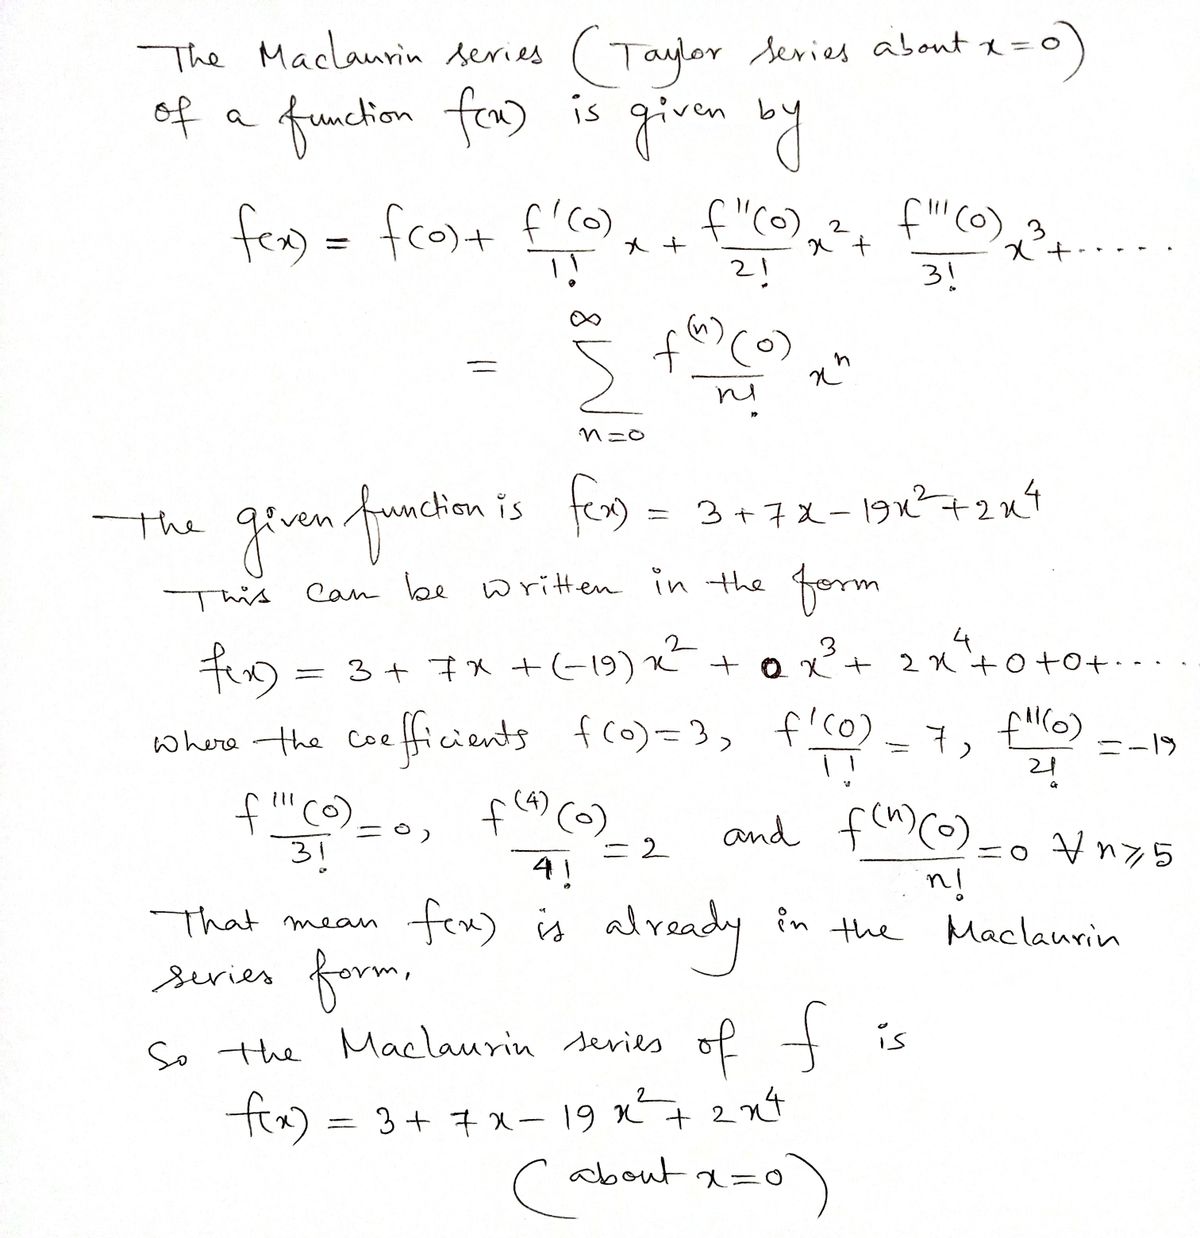 The Maclaurin series (Taylor series about x=0)
of a function f(x) is given by
f(x) = f(0) + f'(0)/1! x + f''(0)/2! x² + f'''(0)/3! x³ + .....
= ∑_{n=0}^{∞} f^(n)(0)/n! xⁿ
The given function is f(x) = 3 + 7x - 19x² + 2x⁴
This can be written in the form
f(x) = 3 + 7x + (-19)x² + 0x³ + 2x⁴ + 0 + 0 + .....
where the coefficients f(0) = 3, f'(0)/1! = 7, f''(0)/2! = -19
f'''(0)/3! = 0, f^(4)(0)/4! = 2 and f^(n)(0)/n! = 0 ∀ n ⩾ 5
That mean f(x) is already in the Maclaurin
series form.
So the Maclaurin series of f is
f(x) = 3 + 7x - 19x² + 2x⁴
(about x=0)